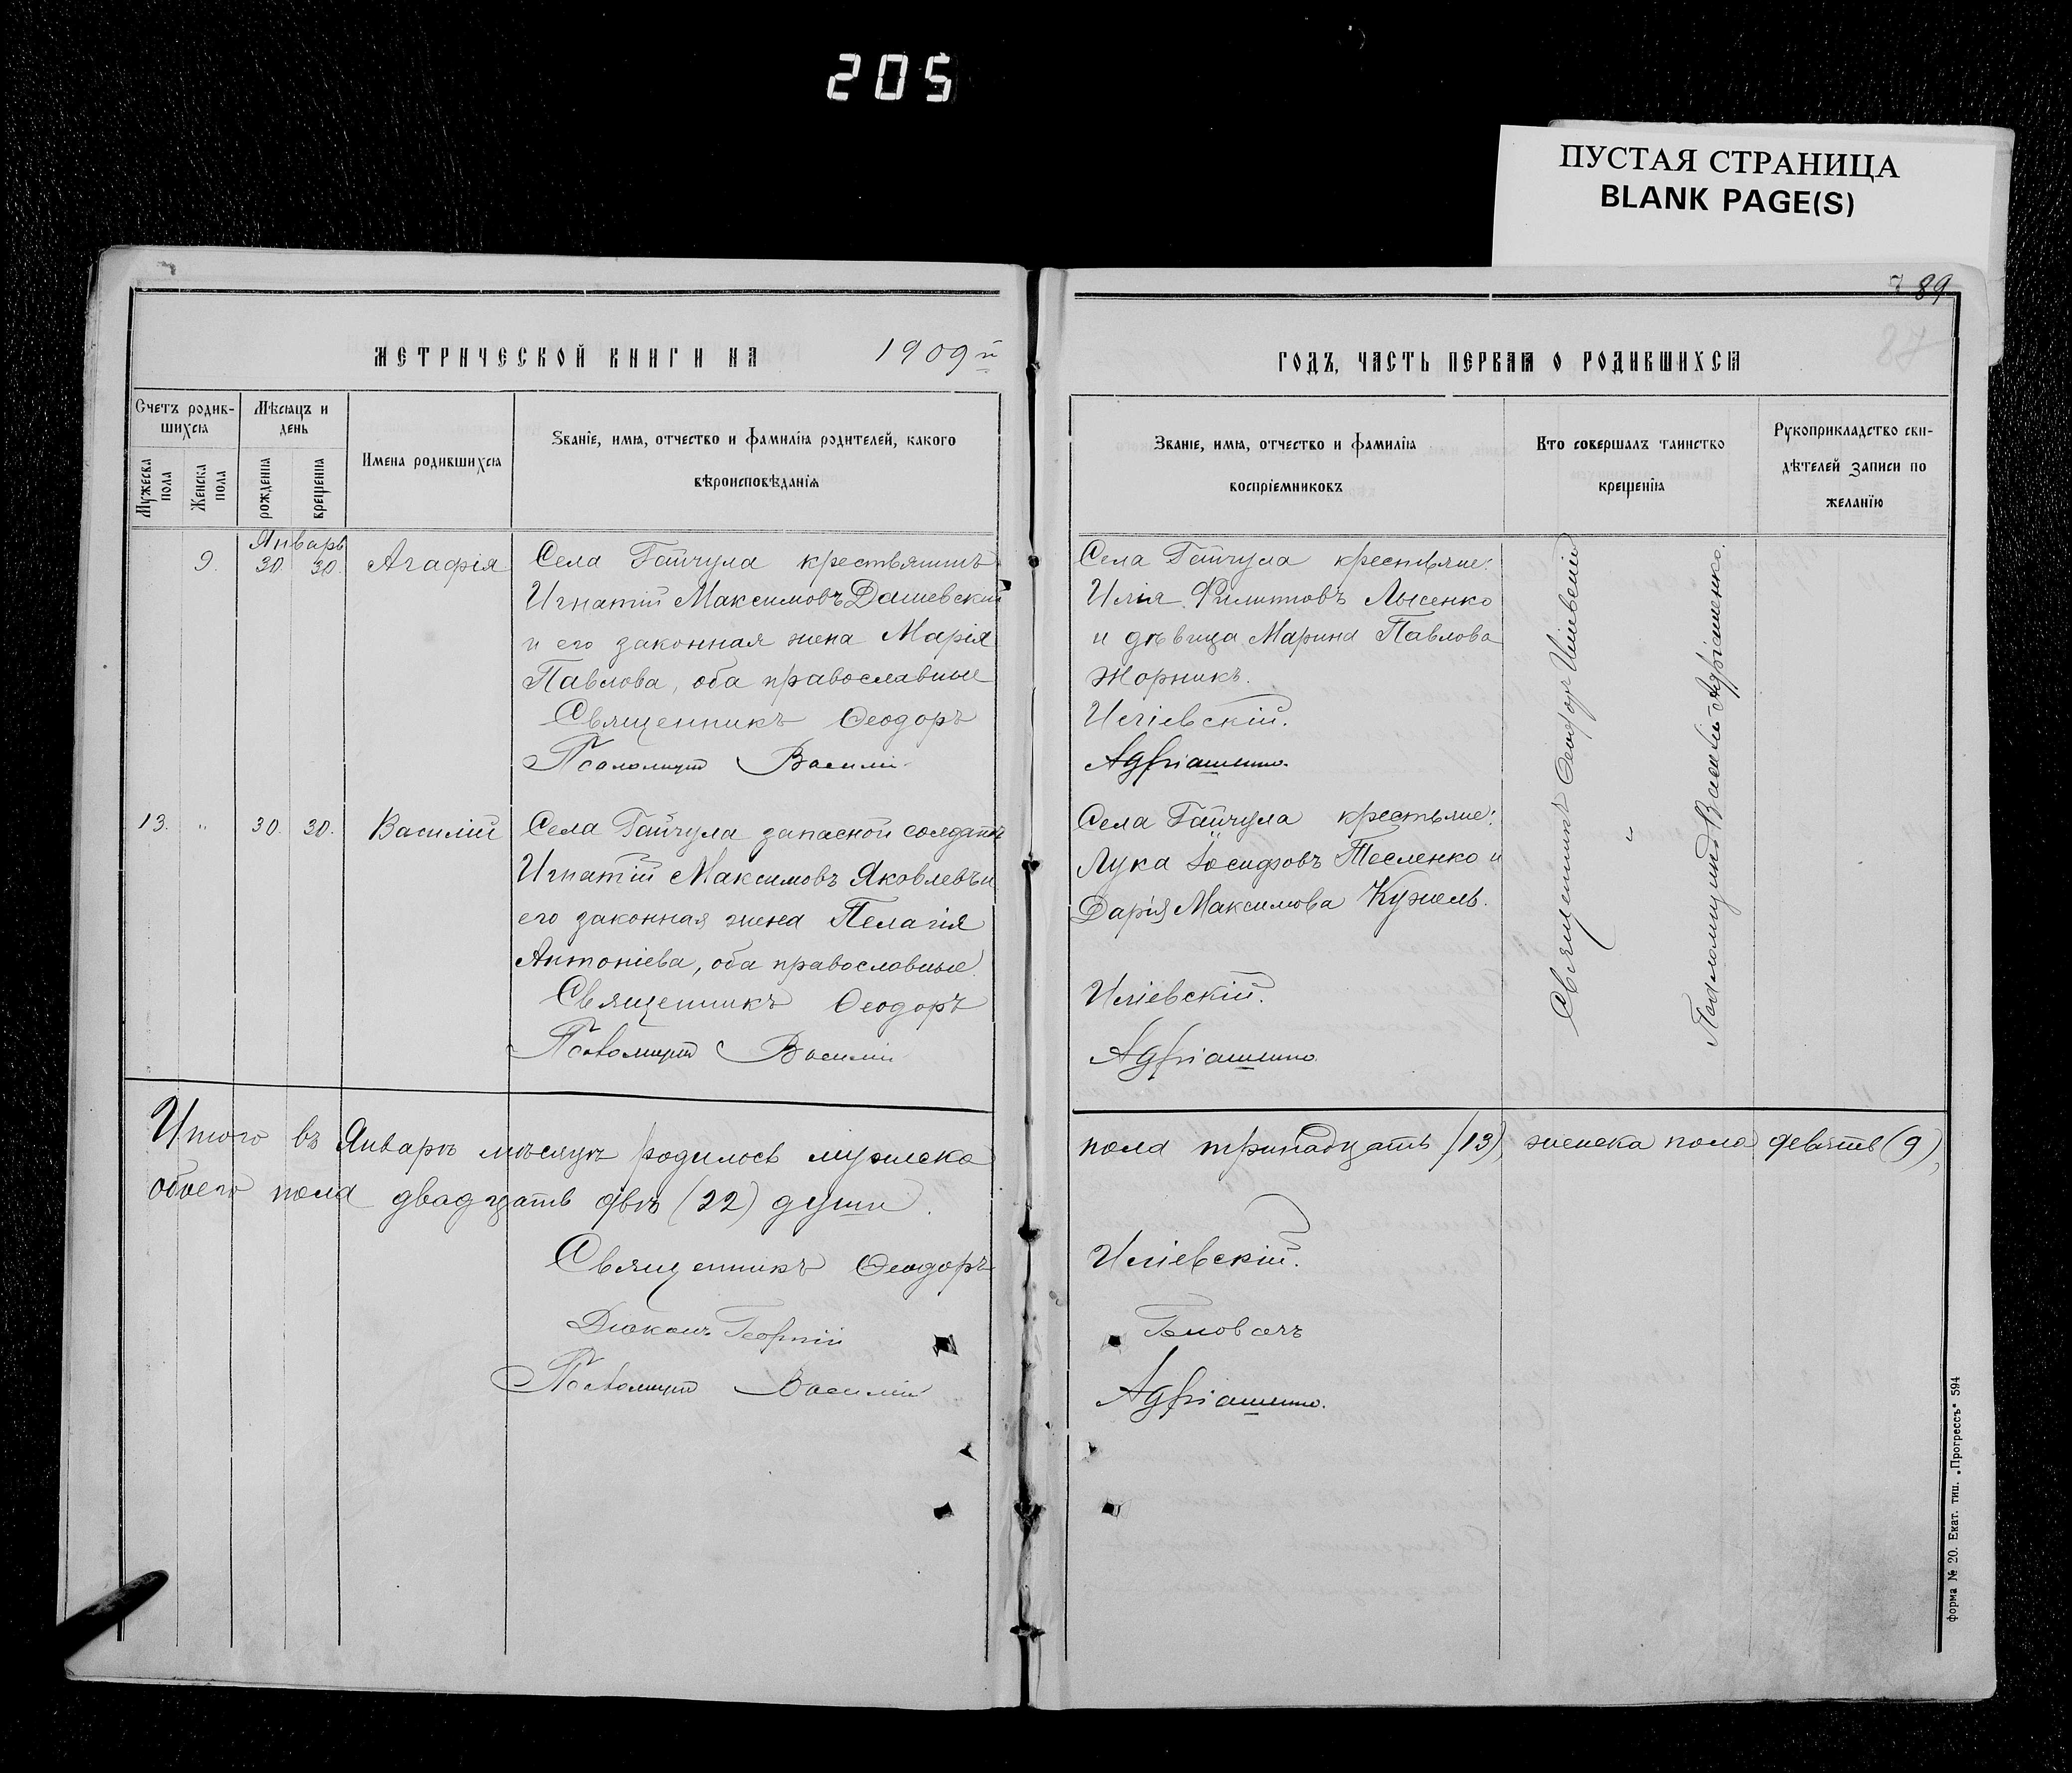 205
ПУСТАЯ СТРАНИЦА
BLANK PAGE(S)
89
87
МЕТРИЧЕСКОЙ КНИГИ НА 1909й
Счетъ родив-
шихся
Мѣсяцъ и
день
Мужеска пола
Женска пола
рожденія
крещенія
Имена родившихся
Званіе, имя, отчество и фамилія родителей, какого
вѣроисповѣданія
Январь
9. 30. 30. Агафія
Села Гайчула крестьянинъ
Игнатій Максимовъ Дашевскій
и его законная жена Марія
Павлова, оба православные
Священникъ Ѳеодоръ
Псаломщикъ Василій
13. " 30. 30. Василій
Села Гайчула запасной солдатъ
Игнатій Максимовъ Яковлевъ и
его законная жена Пелагія
Антоніева, оба православные.
Священникъ Ѳеодоръ
Псаломщикъ Василій
Итого въ Январѣ мѣсяцѣ родилось мужеска
обоего пола двадцать двѣ (22) души.
Священникъ Ѳеодоръ
Діаконъ Георгій
Псаломщикъ Василій
ГОДЪ, ЧАСТЬ ПЕРВАЯ О РОДИВШИХСЯ
Званіе, имя, отчество и фамилія
воспріемниковъ
Кто совершалъ таинство
крещенія
Рукоприкладство сви-
дѣтелей записи по
желанію
Села Гайчула крестьяне:
Илія Филиповъ Лысенко
и дѣвица Марина Павлова
Жорникъ.
Иліевскій.
Адріашенко.
Села Гайчула крестьяне:
Лука Іосифовъ Тесленко и
Дарія Максимова Кужель.
Иліевскій.
Адріашенко
Священникъ Ѳеодоръ Иліевскій
"
Псаломщикъ Василій Адріашенко.
пола тринадцать (13), женска пола девять (9),
Иліевскій.
Адріашенко.
Форма № 20. Екат. тип. „Прогрессъ" 594